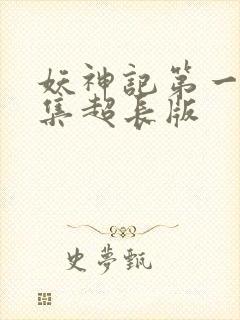 妖神記第一
集超长版
史夢甄